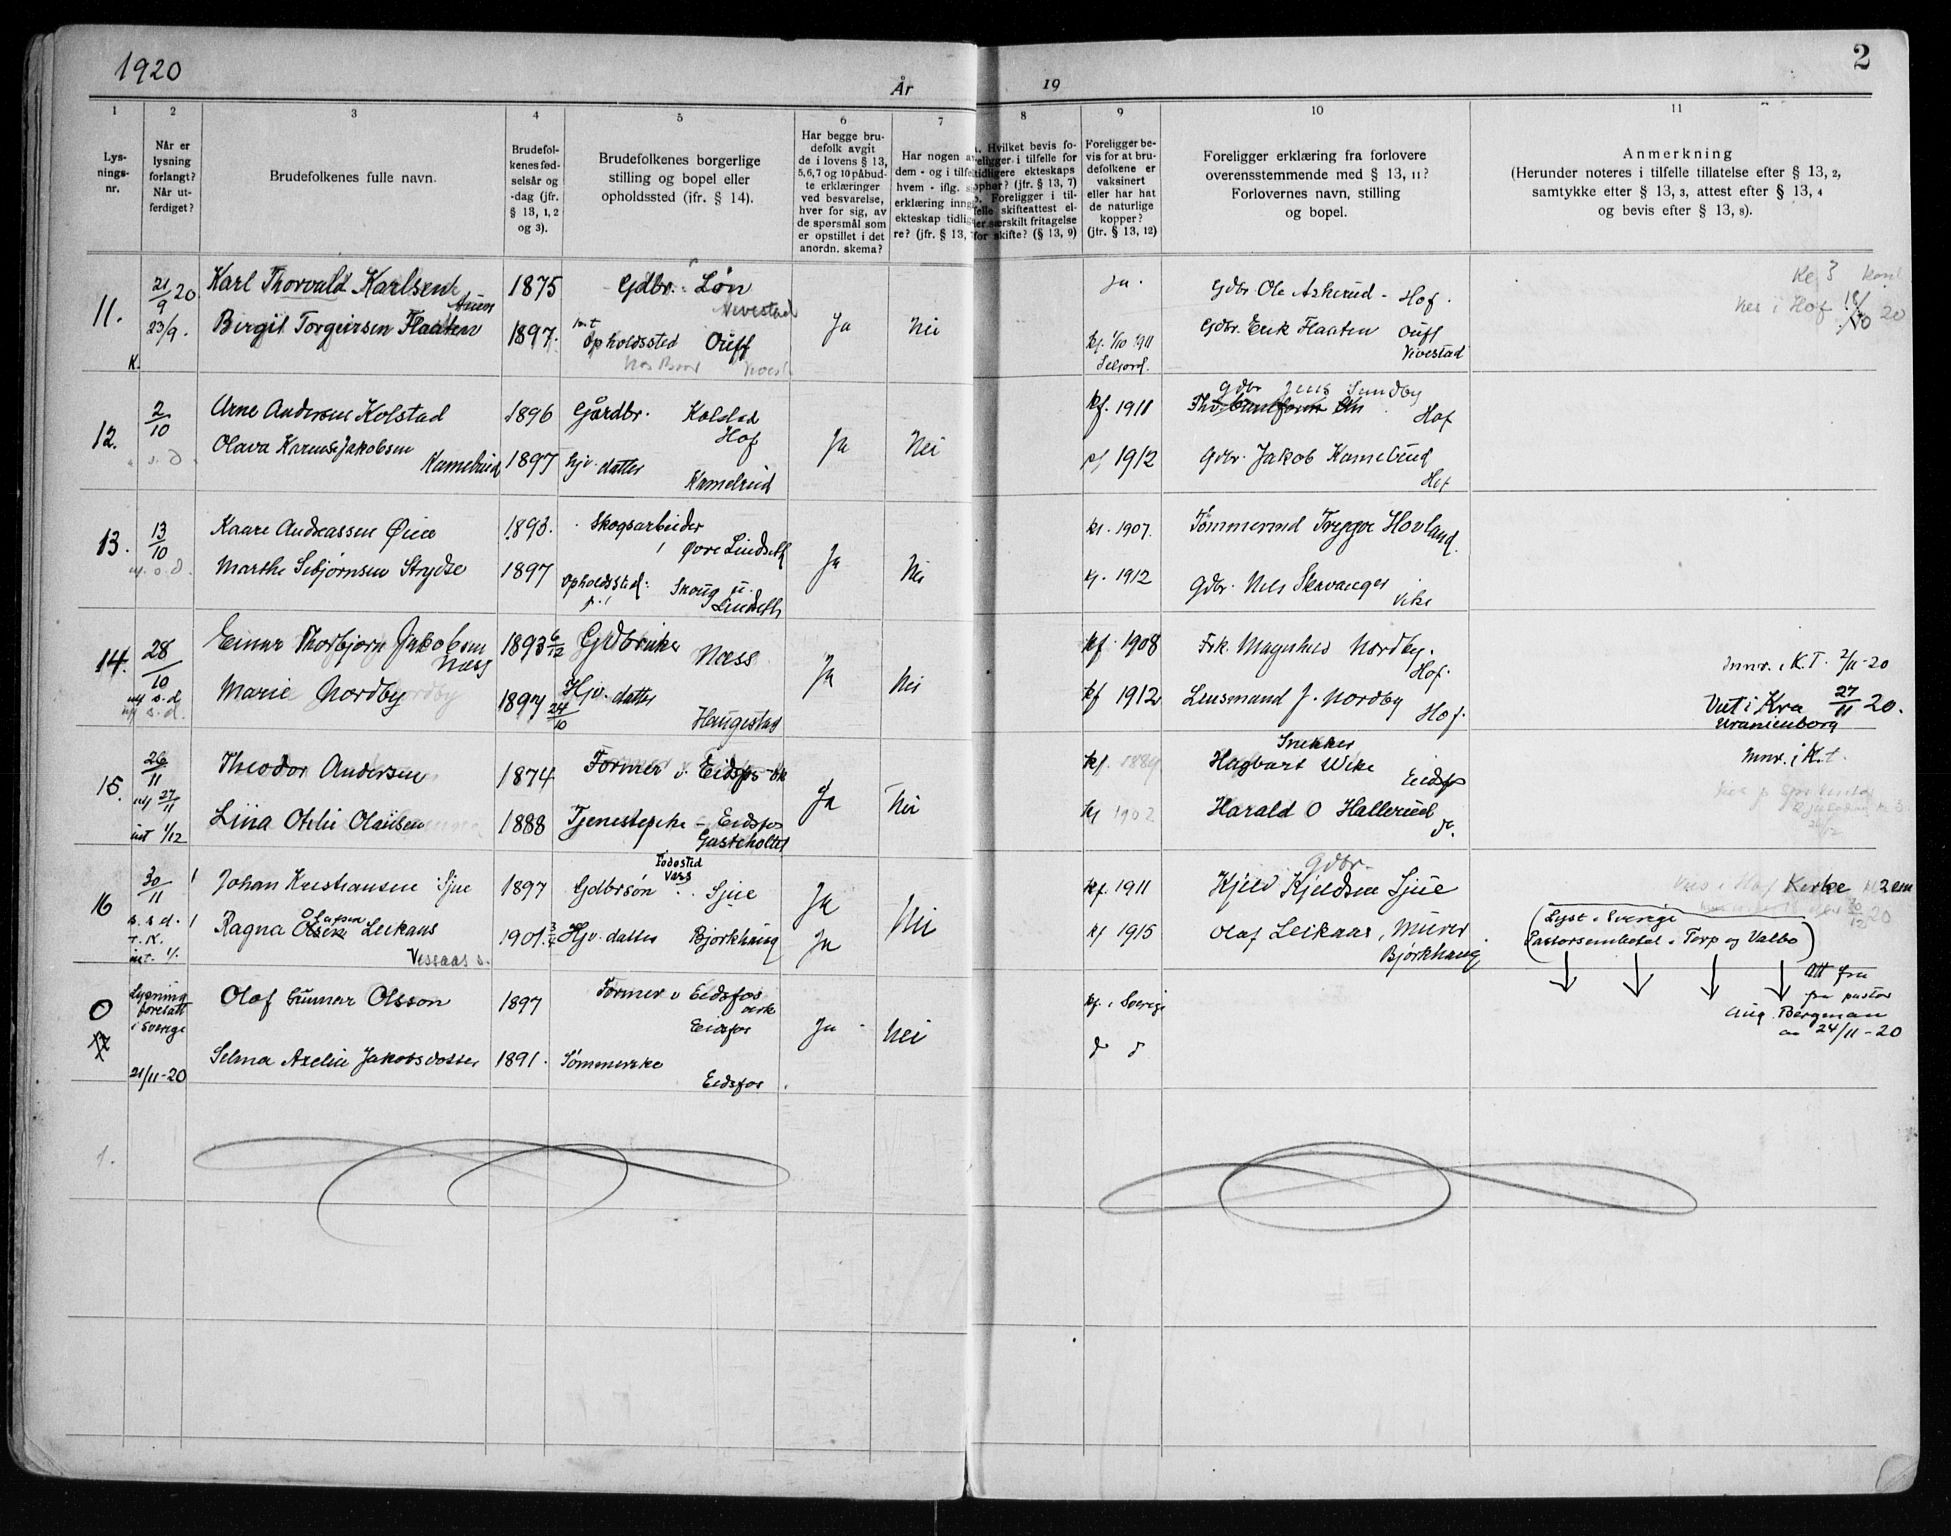 1920
År
19
2
1
2
3
4
5
6
7
8
9
10
11
Lys-
nings-
nr.
Når er
lysning
forlangt?
Når ut-
ferdiget?
Brudefolkenes fulle navn.
Brudefol-
kenes fød-
selsår og
-dag (jfr.
§ 13, 1, 2
og 3).
Brudefolkenes borgerlige
stilling og bopel eller
opholdssted (jfr. § 14).
Har begge bru-
defolk avgit
de i lovens § 13,
5,6,7 og 10 påbud-
te erklæringer
ved besvarelse,
hver for sig, av
de spørsmål som
er opstillet i det
anordn. skema?
Har nogen a
dem - og i tilfe
hvem - iflg. s
erklæring inng
ekteskap tidlig
re? (jfr. § 13,
Hvilket bevis fo-
religger i tilfelle for
tidligere ekteskaps
ophør? (jfr. § 13, 7)
Foreligger i til-
felle skifteattest el-
ler særskilt fritagelse
for skifte? (§ 13, 9)
Foreligger be-
vis for at bru-
defolkene er
vaksinert
eller har hat
de naturlige
kopper?
(jfr. § 13, 12)
Foreligger erklæring fra forlovere
overensstemmende med § 13, 11?
Forlovernes navn, stilling
og bopel.
Anmerkning
(Herunder noteres i tilfelle tillatelse efter § 13, 2,
samtykke etter § 13, 3, attest efter § 13, 4
og bevis efter § 13, 8).
11. 21/9 20 Karl Thorvald Karlsen 1875 Gdbr. Løn ja. Gdbr Ole Askerud - Hof.
Vivestad
23/9. Birgit Torgeirsen Flaaten 1897. Opholdssted Ouff Ja Nei kf. 1/10 1911 Gdbr. Erik Flaaten Ouff
Seljord. Vivestad
K.
Vies i Hof 18/10 20
12. 2/10 Arne Andersen Kolstad 1896 Gårdbr. Kolstad kf. 1911 Gdbr Jens Sundby
Hof Ja Nei Hof
Olava Karense Jakobsen
Kamelrud 1897 hjv. datter kf 1912 Gdbr. Jakob Kamelrud
Kamelrud Hof
13. 13/10 Kaare Andreassen Øien 1893. Skogsarbeider kf. 1907. Tømmermd Trygve Hovland.
s. d. Øvre Lindseth Ja Nei
Marthe Sebjørnsen Strydse 1897 Opholdssted: Skoug u. kf. 1912 Gdbr. Nels Skavanger
Lindseth Vike
14. 28/10 Einar Thorbjørn Jakobsen 1893 6/12 Gdbruker kf. 1908 Frk. Magnhild Nordby.
Næss Næss. Ja Nei Hof.
s. d. Marie Nordby 1897 24/10 Hjv. datter kf 1912 Lensmand J. Nordby
Haugestad Hof.
Innr. i K.T. 2/11-20
Viet i Kra 27/11 20.
Uranienborg
15. 26/11 Theodor Andersen 1874. Former v. Eidsfos vk kf. Snekker
Hagbart Wike Eidsfos
27/11 Ja Nei
1/12 Lina Otelie Olaussen 1888 Tjenestepike - Eidsfos kf 1902 Harald O Hallerud
Gasteholtet do.
Innr. i K.t.
16 30/11 Johan Kristiansen Sjue 1897 Gdbrsøn Sjue Ja kf. 1911 Gdbr.
Kjeld Kjeldsen Sjue
Fødested
Vass
Ragna Olafsen Leikaas 1901. 3/4 Hjv. datter Bjørkhaug Ja Nei kf 1915 Olaf Leikaas, Murer
Bjørkhaug.
Vies i Hof Kirke
(Lyst i Sverige
Pastorsembetet i Torp og Valbo)
O Lysning
foretatt
i Sverige Olof Gunnar Olsson 1897 Former v Eidsfos
verk
Eidsfos Ja. Nei kf. i Sverige
21/11-20 Selma Axelia Jakobsdotter 1891. Sømmerske
Eidsfos.
do d
Att fra
fra pastor
Aug. Bergman
24/11-20